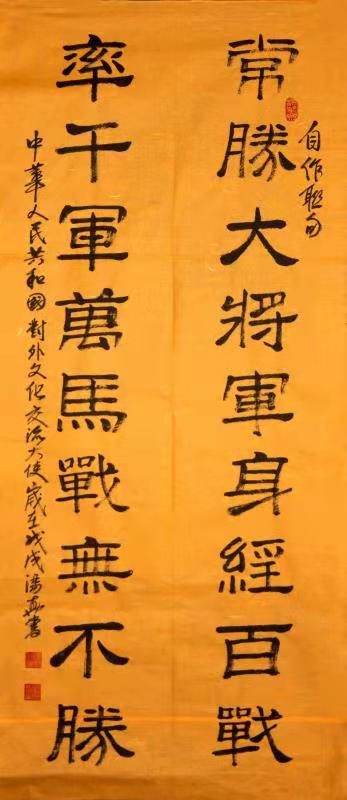 常勝大將軍身經百戰
自作聯句
率千軍萬馬戰無不勝
中華人民共和國對外文化交流大使歲在戊戌